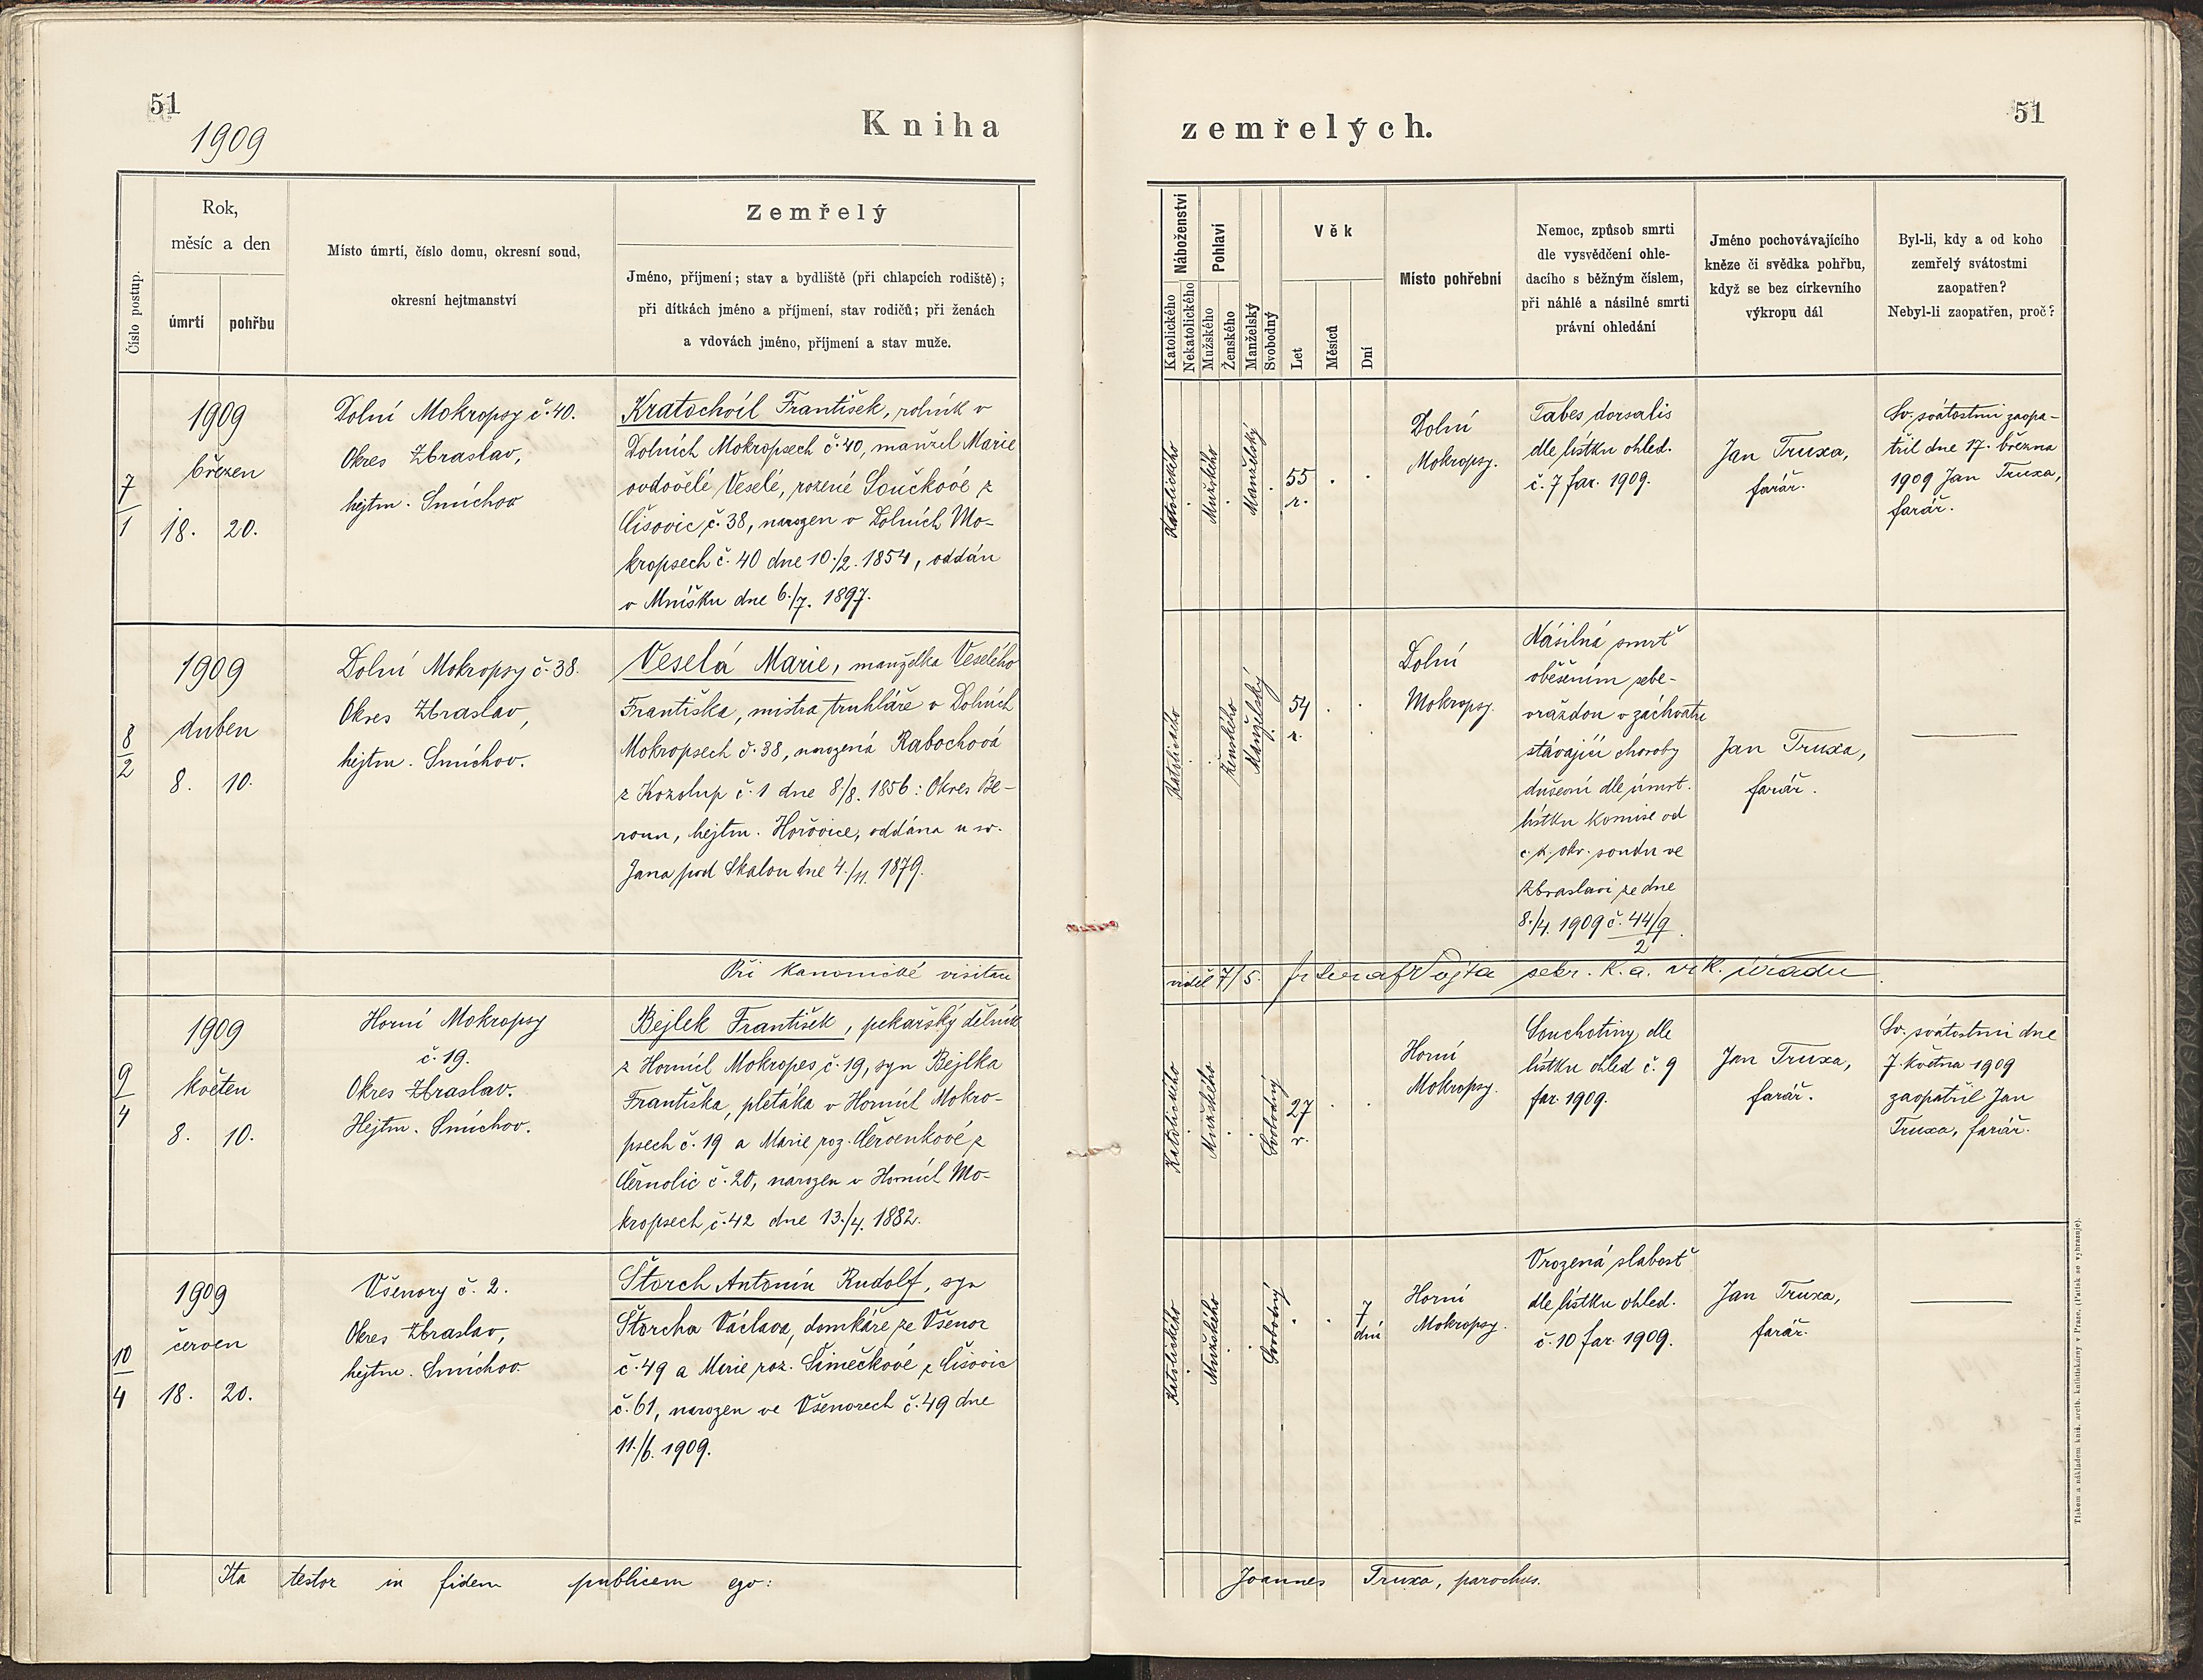 51
1909
Kniha
Číslo postup.
Rok,
měsíc a den
úmrtí
pohřbu
Místo úmrtí, číslo domu, okresní soud,
okresní hejtmanství
Zemřelý
Jméno, příjmení; stav a bydliště (při chlapcích rodiště);
při dítkách jméno a příjmení, stav rodičů; při ženách
a vdovách jméno, příjmení a stav muže.
7
1
1909
březen
18. 20.
Dolní Mokropsy č. 40.
Okres Zbraslav,
hejtm. Smíchov
Kratochvíl František, rolník v
Dolních Mokropsech č. 40, manžel Marie
ovdovělé Veselé, rozené Součkové z
Čísovic č. 38, narozen v Dolních Mo-
kropsech č. 40 dne 10./2. 1854, oddán
v Mníšku dne 6./7. 1897.
8
2
1909
duben
8. 10.
Dolní Mokropsy č. 38.
Okres Zbraslav,
hejtm. Smíchov.
Veselá Marie, manželka Veselého
Františka, mistra truhláře v Dolních
Mokropsech č. 38, narozená Rabochová
z Kozolup č. 1 dne 8./8. 1856: Okres Be-
roun, hejtm. Hořovice, oddána u sv.
Jana pod Skalou dne 4./11. 1879.
Při kanonické visitaci
9
4
1909
květen
8. 10.
Horní Mokropsy
č. 19.
Okres Zbraslav.
Hejtm. Smíchov.
Bejlek František, pekařský dělník
z Horních Mokropes č. 19, syn Bejlka
Františka, pletáka v Horních Mokro-
psech č. 19 a Marie roz. Červenkové z
Černolic č. 20, narozen v Horních Mo-
kropsech č. 42 dne 13./4. 1882.
10
4
1909
červen
18. 20.
Všenory č. 2.
Okres Zbraslav,
hejtm. Smíchov.
Štorch Antonín Rudolf, syn
Štorcha Václava, domkáře ze Všenor
č. 49 a Marie roz. Šimečkové z Čísovic
č. 61, narozen ve Všenorech č. 49 dne
11./6. 1909.
Ita testor in fidem publicem ego:
51
zemřelých.
Náboženství
Katolického
Nekatolického
Pohlaví
Mužského
Ženského
Manželský
Svobodný
Věk
Let
Měsíců
Dní
Místo pohřební
Nemoc, způsob smrti
dle vysvědčení ohle-
dacího s běžným číslem,
při náhlé a násilné smrti
právní ohledání
Jméno pochovávajícího
kněze či svědka pohřbu,
když se bez církevního
výkropu dál
Byl-li, kdy a od koho
zemřelý svátostmi
zaopatřen?
Nebyl-li zaopatřen, proč?
Katolického
Mužského
Manželský
55
r.
Dolní
Mokropsy.
Tabes dorsalis
dle lístku ohled.
č. 7 far. 1909.
Jan Truxa,
farář.
Sv. svátostmi zaopa-
třil dne 17. března
1909 Jan Truxa,
farář.
Katolického
Ženského
Manželský
54
r.
Dolní
Mokropsy.
Násilná smrť
oběšením sebe-
vraždou v záchvatu
stávající choroby
duševní dle úmrt.
lístku komise od
c. k. okr. soudu ve
Zbraslavi ze dne
8./4. 1909 č. 44/9
2
Jan Truxa,
farář.
viděl 7/5. Vojta sekr. K. a. vik. úřadu.
Katolického
Mužského
Svobodný
27
r.
Horní
Mokropsy.
Souchotiny dle
lístku ohled č. 9
far. 1909.
Jan Truxa,
farář.
Sv. svátostmi dne
7. května 1909
zaopatřil Jan
Truxa, farář.
Katolického
Mužského
Svobodný
7
dní
Horní
Mokropsy.
Vrozená slabosť
dle lístku ohled.
č. 10 far. 1909.
Jan Truxa,
farář.
Joannes Truxa, parochus.
Tiskem a nákladem kníž. arcib. knihtiskárny v Praze. (Patisk se vyhrazuje).